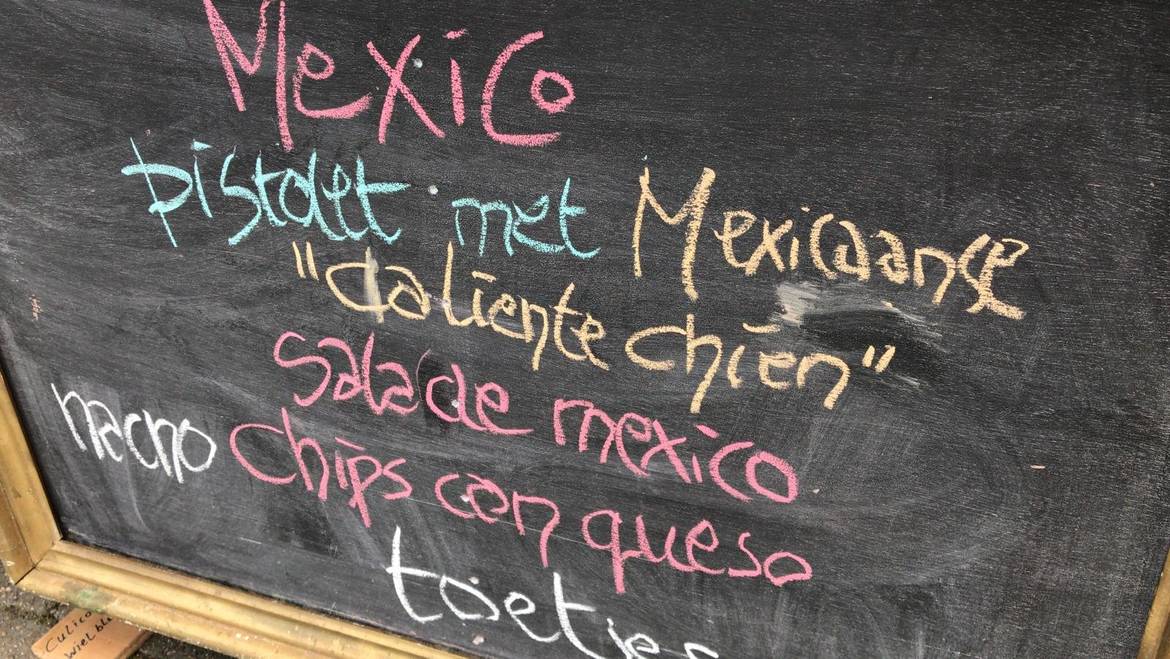 Mexico
pistolet met Mexicaanse
"caliente chien"
salade mexico
nacho chips con queso
toetjes